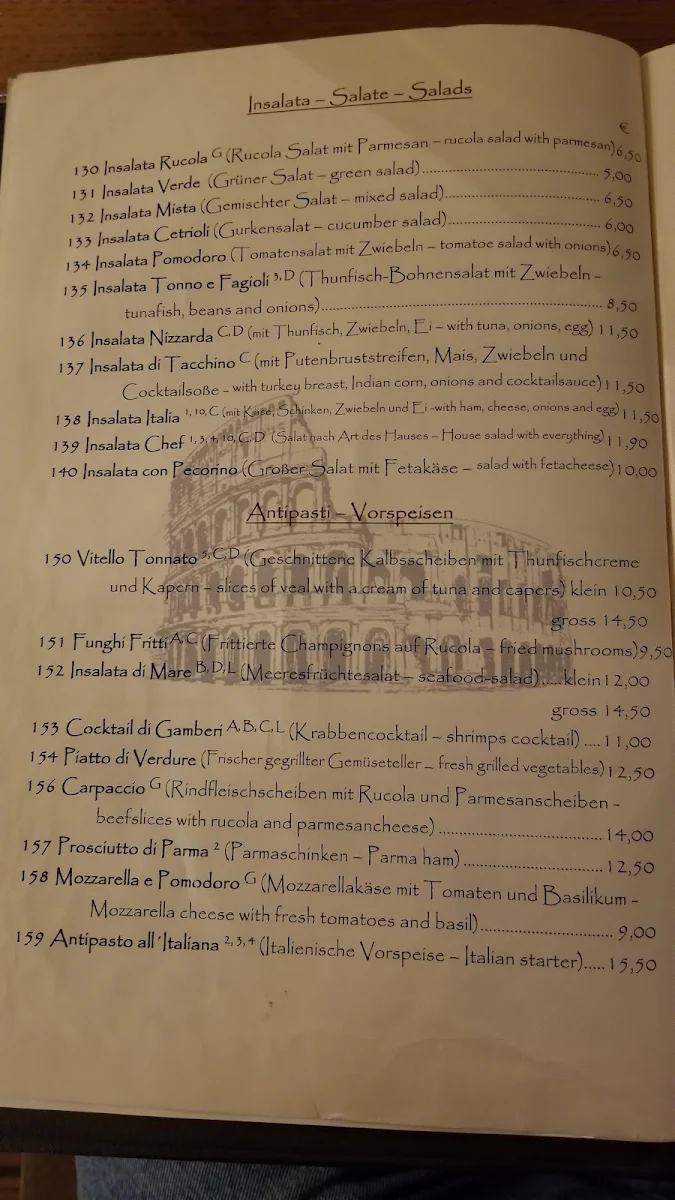 Insalata – Salate – Salads
€
130 Insalata Rucola G (Rucola Salat mit Parmesan – rucola salad with parmesan) 6,50
131 Insalata Verde (Grüner Salat – green salad)........................................ 5,00
132 Insalata Mista (Gemischter Salat – mixed salad)................................... 6,50
133 Insalata Cetrioli (Gurkensalat – cucumber salad)................................... 6,00
134 Insalata Pomodoro (Tomatensalat mit Zwiebeln – tomatoe salad with onions) 6,50
135 Insalata Tonno e Fagioli 3, D (Thunfisch-Bohnensalat mit Zwiebeln –
tunafish, beans and onions)................................................................ 8,50
136 Insalata Nizzarda C,D (mit Thunfisch, Zwiebeln, Ei – with tuna, onions, egg) 11,50
137 Insalata di Tacchino C (mit Putenbruststreifen, Mais, Zwiebeln und
Cocktailsoße – with turkey breast, Indian corn, onions and cocktailsauce) 11,50
138 Insalata Italia 1, 10, C (mit Käse, Schinken, Zwiebeln und Ei -with ham, cheese, onions and egg) 11,50
139 Insalata Chef 1, 3, 4, 10, C, D (Salat nach Art des Hauses – House salad with everything) 11,90
140 Insalata con Pecorino (Großer Salat mit Fetakäse – salad with fetacheese) 10,00
Antipasti – Vorspeisen
150 Vitello Tonnato 3, C, D (Geschnittene Kalbsscheiben mit Thunfischcreme
und Kapern – slices of veal with a cream of tuna and capers) klein 10,50
gross 14,50
151 Funghi Fritti A C (Frittierte Champignons auf Rucola – fried mushrooms) 9,50
152 Insalata di Mare B, D, L (Meeresfrüchtesalat – seafood-salad)......klein 12,00
gross 14,50
153 Cocktail di Gamberi A, B, C, L (Krabbencocktail – shrimps cocktail) .... 11,00
154 Piatto di Verdure (Frischer gegrillter Gemüseteller – fresh grilled vegetables) 12,50
156 Carpaccio G (Rindfleischscheiben mit Rucola und Parmesanscheiben –
beefslices with rucola and parmesancheese)..................................... 14,00
157 Prosciutto di Parma 2 (Parmaschinken – Parma ham)............................... 12,50
158 Mozzarella e Pomodoro G (Mozzarellakäse mit Tomaten und Basilikum –
Mozzarella cheese with fresh tomatoes and basil)............................... 9,00
159 Antipasto all´Italiana 2, 3, 4 (Italienische Vorspeise – Italian starter)..... 15,50